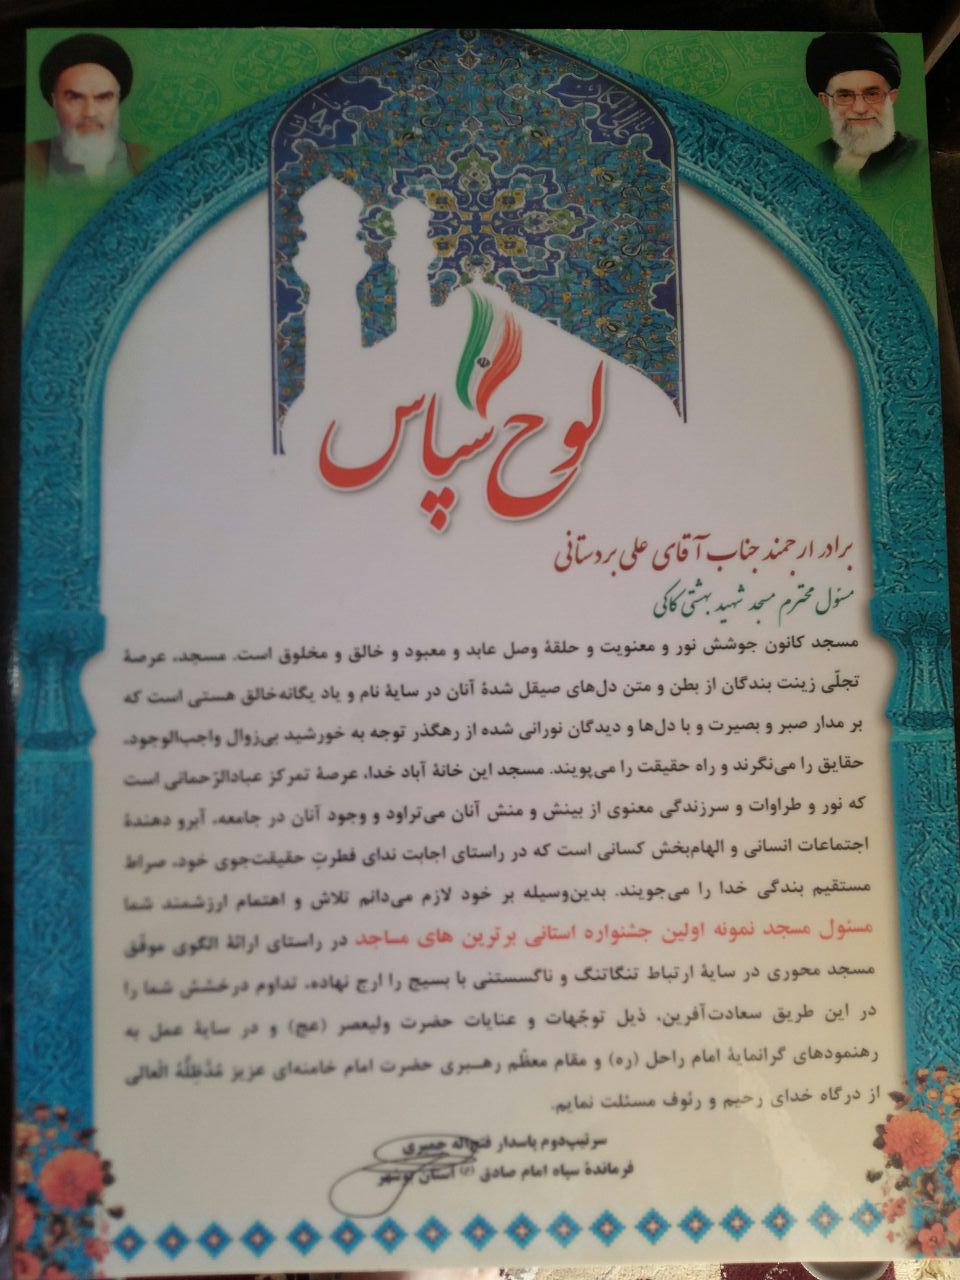 لوح سپاس
برادر ارجمند جناب آقای علی بردستانی
مسئول محترم مسجد شهید بهشتی کاکی
مسجد کانون جوشش نور و معنویت و حلقهٔ وصل عابد و معبود و خالق و مخلوق است. مسجد، عرصهٔ
تجلّی زینت بندگان از بطن و متن دل‌های صیقل شدهٔ آنان در سایهٔ نام و یاد یگانه‌خالق هستی است که
بر مدار صبر و بصیرت و با دل‌ها و دیدگان نورانی شده از رهگذر توجه به خورشید بی‌زوال واجب‌الوجود،
حقایق را می‌نگرند و راه حقیقت را می‌پویند. مسجد این خانهٔ آباد خدا، عرصهٔ تمرکز عبادالرّحمانی است
که نور و طراوات و سرزندگی معنوی از بینش و منش آنان می‌تراود و وجود آنان در جامعه، آبرو دهندهٔ
اجتماعات انسانی و الهام‌بخش کسانی است که در راستای اجابت ندای فطرتِ حقیقت‌جوی خود، صراط
مستقیم بندگی خدا را می‌جویند. بدین‌وسیله بر خود لازم می‌دانم تلاش و اهتمام ارزشمند شما
مسئول مسجد نمونه اولین جشنواره استانی برترین های مساجد در راستای ارائهٔ الگوی موفّق
مسجد محوری در سایهٔ ارتباط تنگاتنگ و ناگسستنی با بسیج را ارج نهاده، تداوم درخشش شما را
در این طریق سعادت‌آفرین، ذیل توجّهات و عنایات حضرت ولیعصر (عج) و در سایهٔ عمل به
رهنمودهای گرانمایهٔ امام راحل (ره) و مقام معظّم رهبری حضرت امام خامنه‌ای عزیز مُدَّظِلُّهُ الْعالی
از درگاه خدای رحیم و رئوف مسئلت نمایم.
سرتیپ‌دوم پاسدار فتح‌اله جمیری
فرماندهٔ سپاه امام صادق (ع) استان بوشهر